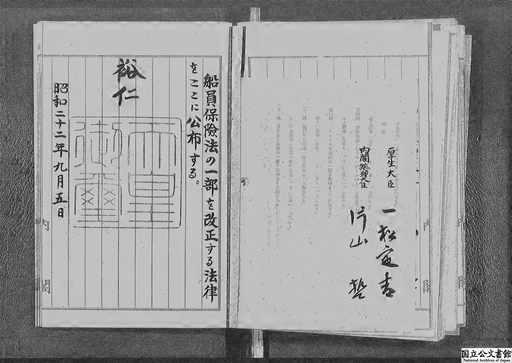 厚生大臣 一松定吉
内閣総理大臣 片山哲
船員保險法の一部を改正する法律
をここに公布する。
裕仁
天皇
御璽
昭和二十二年九月五日
内閣
国立公文書館
National Archives of Japan